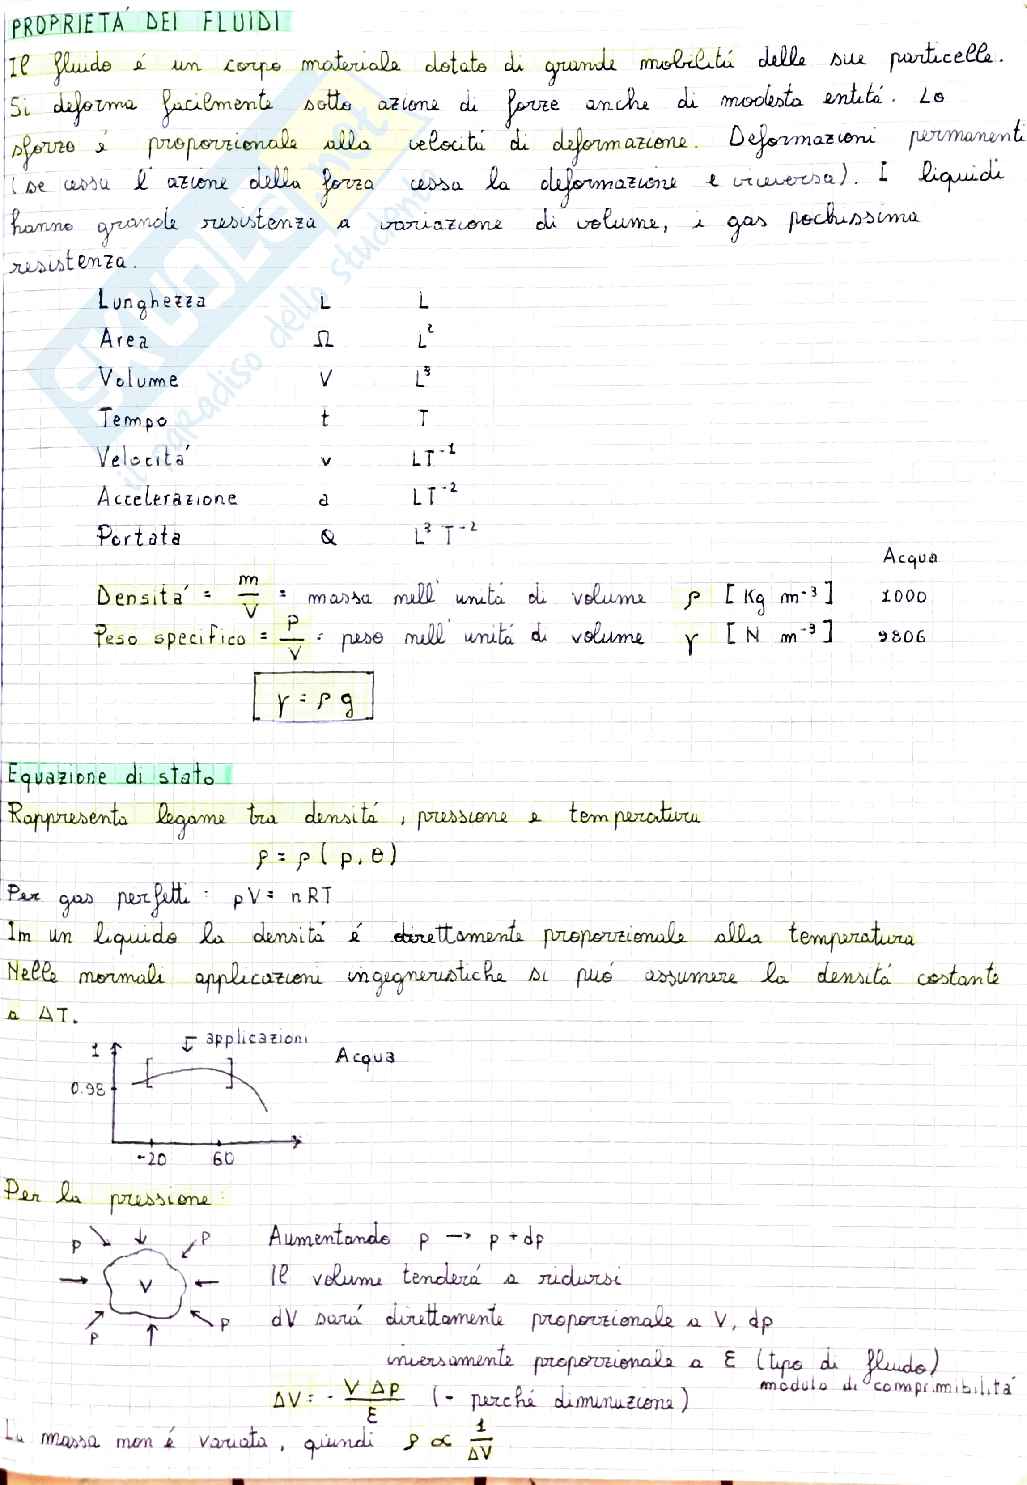 PROPRIETÁ DEI FLUIDI
Il fluido é un corpo materiale dotato di grande mobilitá delle sue particelle.
Si deforma facilmente sotto azione di forze anche di modesta entitá. Lo
sforzo é proporzionale alla velocitá di deformazione. Deformazioni permanenti
(se cessa l'azione della forza cessa la deformazione e viceversa). I liquidi
hanno grande resistenza a variazione di volume, i gas pochissima
resistenza.
Lunghezza L L
Area Ω L²
Volume V L³
Tempo t T
Velocitá v LT⁻¹
Accelerazione a LT⁻²
Portata Q L³ T⁻²
Acqua
Densitá = m/V = massa nell'unitá di volume ρ [Kg m⁻³] 1000
Peso specifico = P/V = peso nell'unitá di volume γ [N m⁻³] 9806
γ = ρ g
Equazione di stato
Rappresenta legame tra densitá, pressione e temperatura
ρ = ρ(p, θ)
Per gas perfetti: pV = nRT
In un liquido la densitá é direttamente proporzionale alla temperatura
Nelle normali applicazioni ingegneristiche si puó assumere la densitá costante
a ΔT.
applicazioni
1
Acqua
0.98
-20 60
Per la pressione:
p p Aumentando p → p + dp
V Il volume tenderá a ridursi
p p dV sará direttamente proporzionale a V, dp
inversamente proporzionale a ε (tipo di fluido)
modulo di comprimibilitá
ΔV = - V Δp / ε (- perché diminuzione)
La massa non é variata, quindi ρ ∝ 1/ΔV
SKUOLA.net
il paradiso dello studente